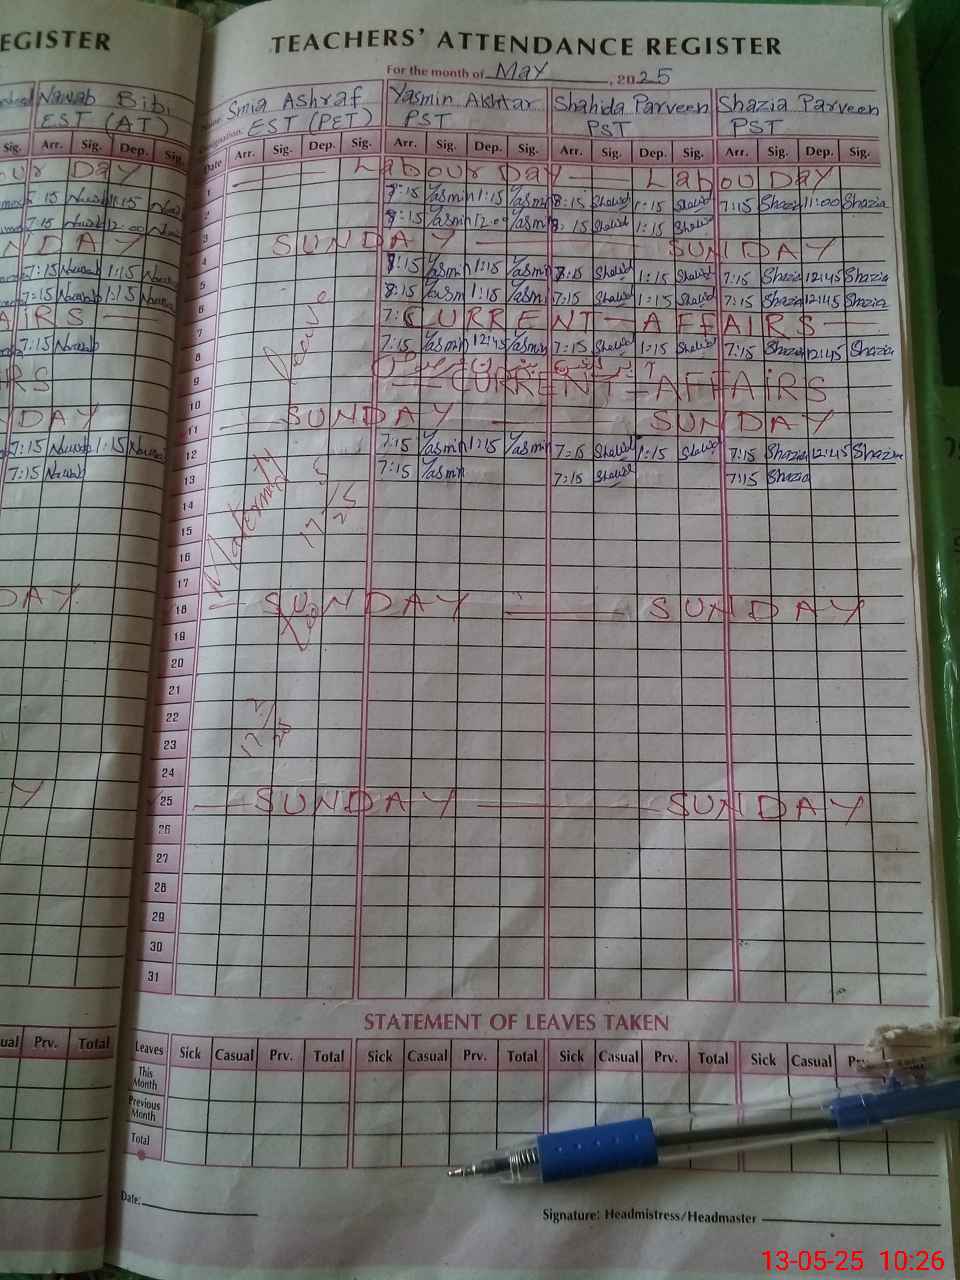 EGISTER
Nawab Bibi
EST (AT)
Sig. Arr. Sig. Dep. Sig.
our Day
7:15 12:00
NDAY
7:15 Nawab 1:15
7:15 Nawab 1:15
AIRS
7:15 Nawab
IRS
DAY
7:15 Nawab 1:15
7:15 Nawab
DAY
Y
ual Prv. Total
TEACHERS' ATTENDANCE REGISTER
For the month of May, 2025
Name: Smia Ashraf Yasmin Akhtar Shahida Parveen Shazia Parveen
EST (PET) PST PST PST
Date Arr. Sig. Dep. Sig. Arr. Sig. Dep. Sig. Arr. Sig. Dep. Sig. Arr. Sig. Dep. Sig.
1 Labour Day Labour Day
2 Yasmin 1:15 Yasmin 8:15 Shahid 1:15 Shahid 7:15 Shazia 11:00 Shazia
3 Yasmin 12:00 Yasmin 8:15 Shahid 1:15 Shahid
4 SUNDAY SUNDAY
5 Yasmin 1:15 Yasmin Shahid 1:15 Shahid 7:15 Shazia 12:45 Shazia
6 Yasmin 1:15 Yasmin 7:15 Shahid 1:15 Shahid 7:15 Shazia 12:45 Shazia
7 CURRENT - AFFAIRS
8 7:15 Yasmin 12:45 Yasmin 7:15 Shahid 1:15 Shahid 7:15 Shazia 12:45 Shazia
9 CURRENT - AFFAIRS
10
11 SUNDAY SUNDAY
12 7:15 Yasmin 1:15 Yasmin 7:15 Shahid 1:15 Shahid 7:15 Shazia 12:45 Shazia
13 7:15 Yasmin 7:15 Shahid 7:15 Shazia
14
15
16
17
18 SUNDAY SUNDAY
19
20
21
22
23
24
25 SUNDAY SUNDAY
26
27
28
29
30
31
Maternity Leave
17/5/25
17/2/25
STATEMENT OF LEAVES TAKEN
Leaves Sick Casual Prv. Total Sick Casual Prv. Total Sick Casual Prv. Total Sick Casual
This Month
Previous Month
Total
Date:
Signature: Headmistress/Headmaster
13-05-25 10:26